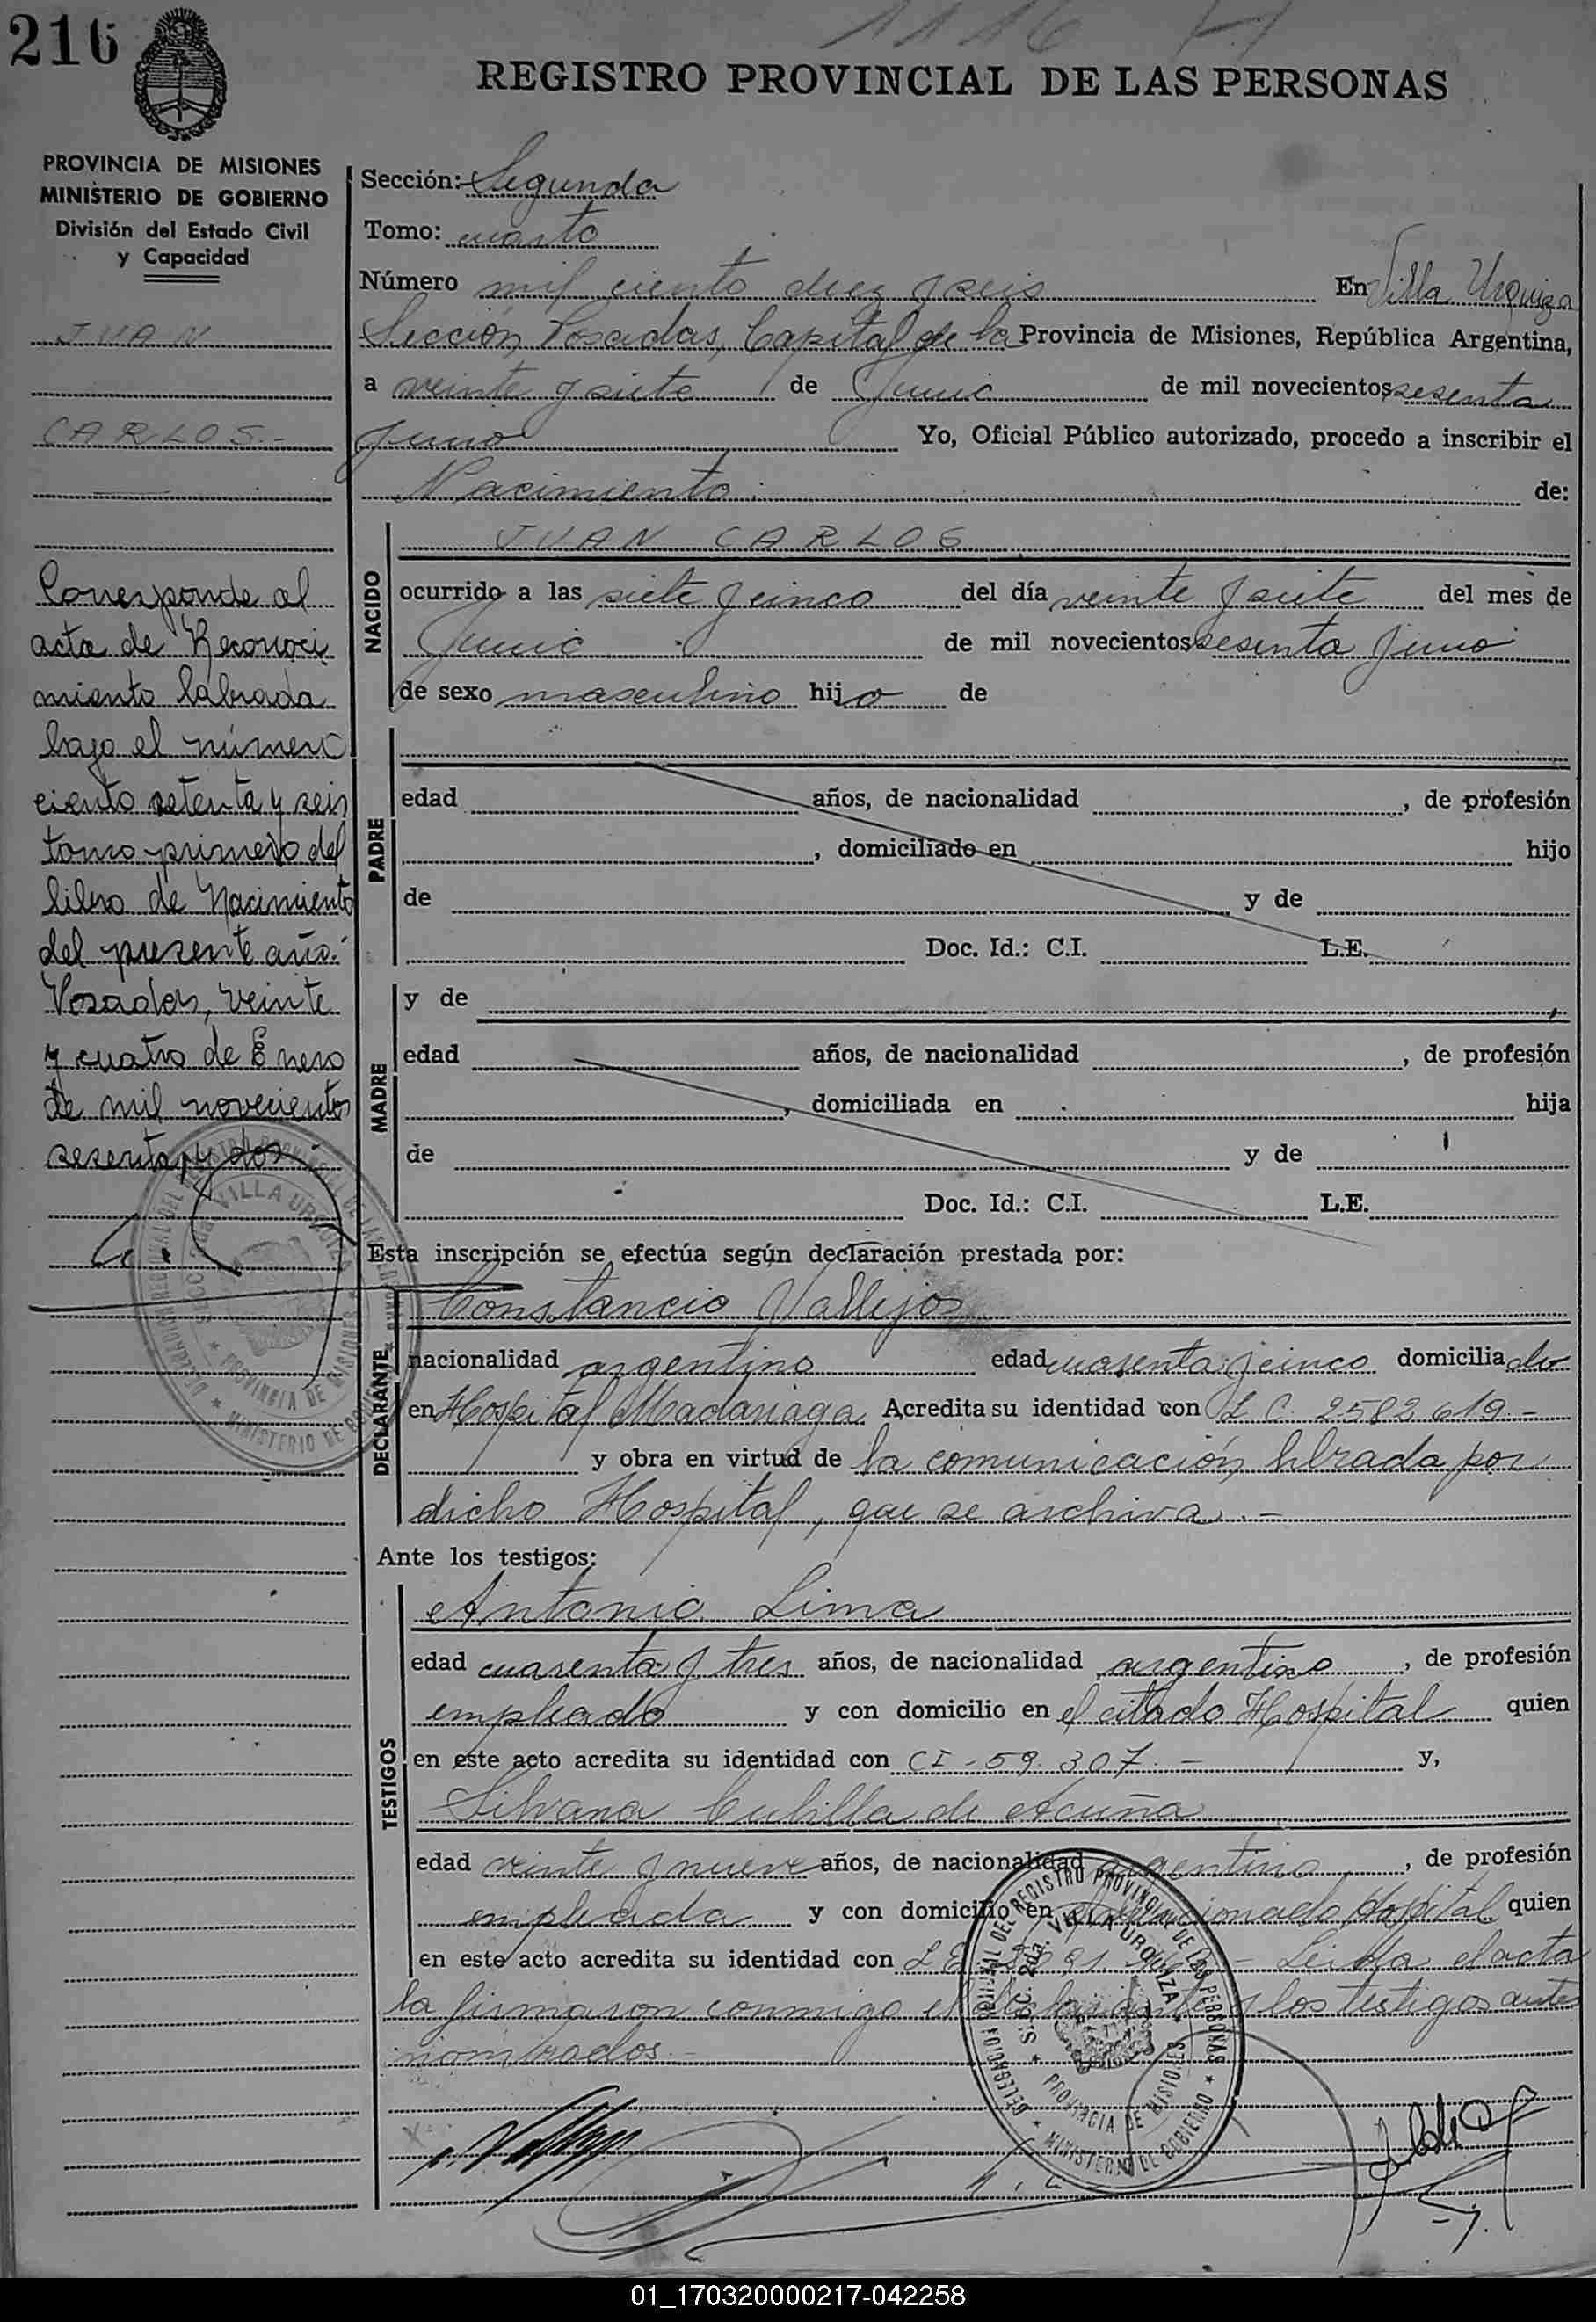 216
1116
REGISTRO PROVINCIAL DE LAS PERSONAS
PROVINCIA DE MISIONES
MINISTERIO DE GOBIERNO
División del Estado Civil
y Capacidad
JUAN
CARLOS.-
Corresponde al
acta de Reconoci
miento labrada
bajo el número
ciento setenta y seis
tomo primero del
libro de Nacimiento
del presente año.
Posadas, veinte
y cuatro de Enero
de mil novecientos
sesenta y dos
Sección: Segunda
Tomo: cuarto
Número mil ciento diez y seis En Villa Urquiza
Sección, Posadas, Capital de la Provincia de Misiones, República Argentina,
a veinte y siete de Junio de mil novecientos sesenta
y uno Yo, Oficial Público autorizado, procedo a inscribir el
Nacimiento de:
NACIDO
JUAN CARLOS
ocurrido a las siete y cinco del día veinte y siete del mes de
Junio de mil novecientos sesenta y uno
de sexo masculino hijo de
PADRE
edad años, de nacionalidad , de profesión
, domiciliado en hijo
de y de
Doc. Id.: C.I. L.E.
MADRE
y de ,
edad años, de nacionalidad , de profesión
, domiciliada en hija
de y de
Doc. Id.: C.I. L.E.
Esta inscripción se efectúa según declaración prestada por:
DECLARANTE
Constancio Vallejos
nacionalidad argentino edad cuarenta y cinco domiciliado
en Hospital Madariaga Acredita su identidad con L C. 2582.619.-
y obra en virtud de la comunicación librada por
dicho Hospital, que se archiva.-
Ante los testigos:
TESTIGOS
Antonio Lima
edad cuarenta y tres años, de nacionalidad argentino, de profesión
empleado y con domicilio en el citado Hospital quien
en este acto acredita su identidad con CI-59.307.- y,
Silvana Cubilla de Acuña
edad veinte y nueve años, de nacionalidad argentina, de profesión
empleada y con domicilio en el mencionado Hospital quien
en este acto acredita su identidad con Leída el acta
la firmaron conmigo el declarante y los testigos antes
nombrados.-
DELEGACION REGIONAL DEL REGISTRO PROVINCIAL DE LAS PERSONAS
SECC. 2da. VILLA URQUIZA
PROVINCIA DE MISIONES
MINISTERIO DE GOBIERNO
01_170320000217-042258